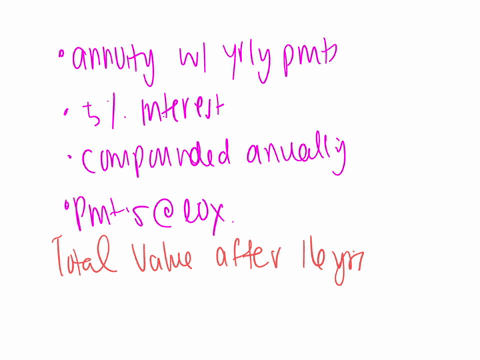 • annuity w/ yrly pmts
• 5% interest
• compounded anually
• Pmt's @ EOY.
Total Value after 16 yrs